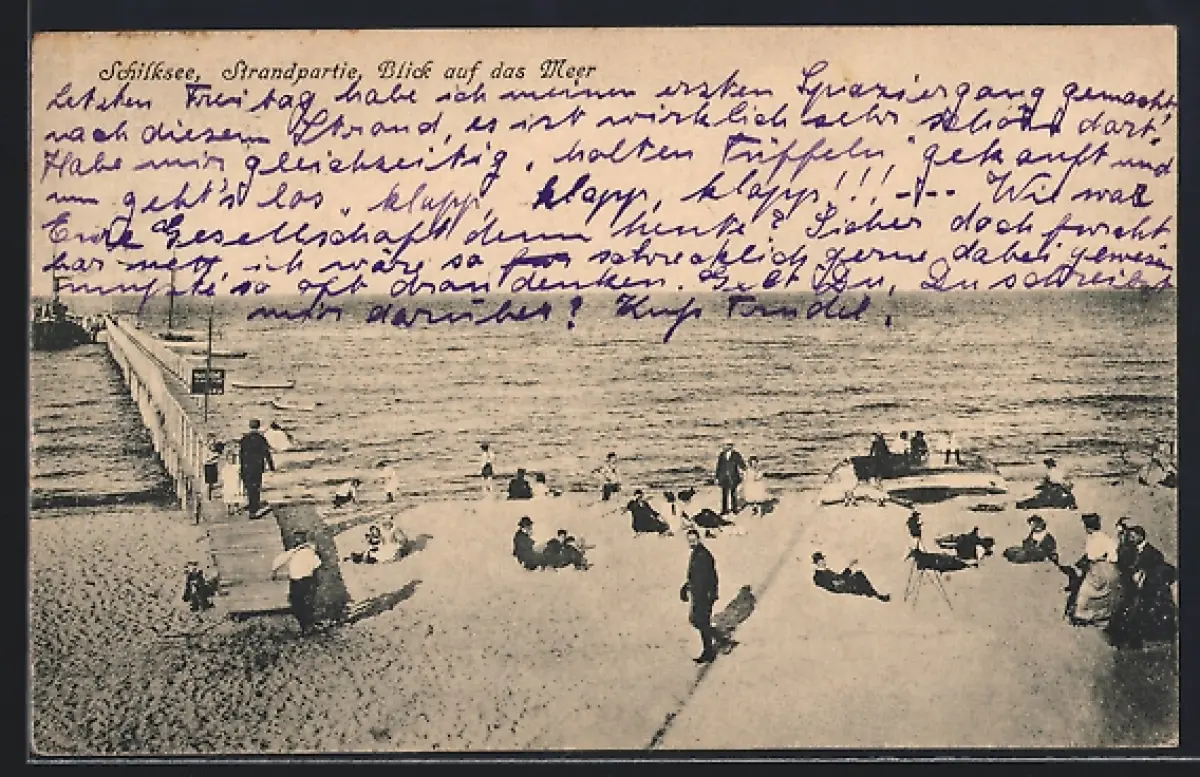 Schilksee, Strandpartie, Blick auf das Meer
Letzten Freitag habe ich meinen ersten Spaziergang gemacht
nach diesem Strand, es ist wirklich sehr schön dort,
Habe mir gleichzeitig, holten Trüffeln, gekauft und
nun geht's los, klapp, klapp, klapp!!! --- Wie war
Eure Gesellschaft denn heute? Sicher doch furcht
bar nett, ich wäre so schrecklich gerne dabei gewesen
mußte so oft dran denken. Gelt Du, Du schreibst
mir darüber? Kuß Trudel.